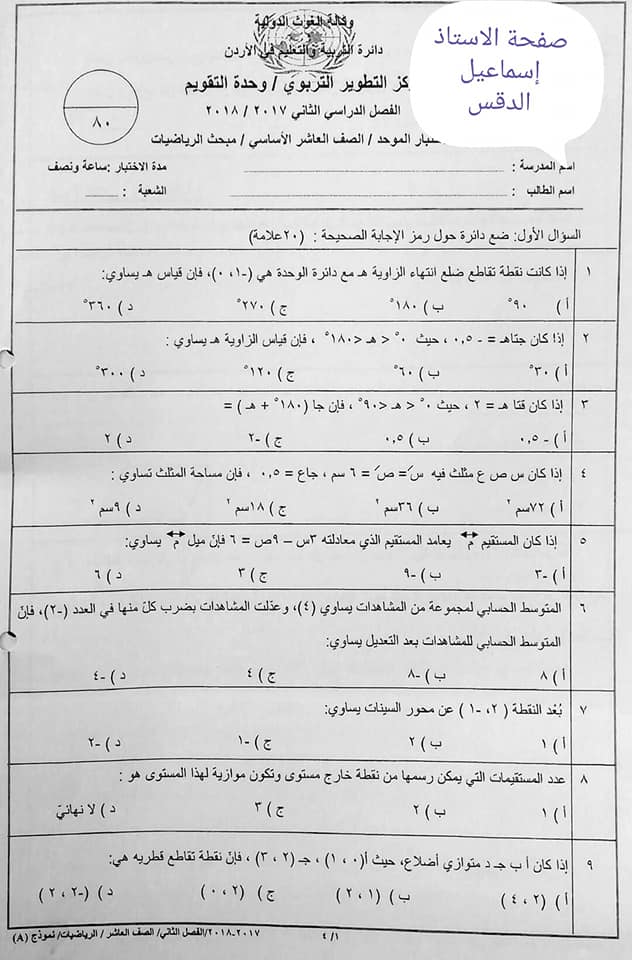 وكالة الغوث الدولية
دائرة التربية والتعليم في الأردن
التطوير التربوي / وحدة التقويم
الفصل الدراسي الثاني ٢٠١٧ / ٢٠١٨
الموحد / الصف العاشر الأساسي / مبحث الرياضيات
صفحة الاستاذ
إسماعيل
الدقس
٨٠
اسم المدرسة : مدة الاختبار :ساعة ونصف
اسم الطالب : الشعبة :
السؤال الأول: ضع دائرة حول رمز الإجابة الصحيحة : (٢٠علامة)
١ إذا كانت نقطة تقاطع ضلع انتهاء الزاوية هـ مع دائرة الوحدة هي (-١، ٠)، فإن قياس هـ يساوي:
أ ) ٩٠° ب ) ١٨٠° ج ) ٢٧٠° د ) ٣٦٠°
٢ إذا كان جتاهـ = - ٠,٥ ، حيث ٠° < هـ < ١٨٠° ، فإن قياس الزاوية هـ يساوي :
أ ) ٣٠° ب ) ٦٠° ج ) ١٢٠° د ) ٣٠٠°
٣ إذا كان قتا هـ = ٢ ، حيث ٠° < هـ < ٩٠° ، فإن جا (١٨٠° + هـ ) =
أ ) - ٠,٥ ب ) ٠,٥ ج ) -٢ د ) ٢
٤ إذا كان س ص ع مثلث فيه سَ = صَ = ٦ سم ، جاع = ٠,٥ ، فإن مساحة المثلث تساوي :
أ ) ٧٢سم ٢ ب ) ٣٦سم ٢ ج ) ١٨سم ٢ د ) ٩سم ٢
٥ إذا كان المستقيم م↔ يعامد المستقيم الذي معادلته ٣س – ٩ص = ٦ فإنّ ميل م↔ يساوي:
أ ) -٣ ب ) -٩ ج ) ٣ د ) ٦
٦ المتوسط الحسابي لمجموعة من المشاهدات يساوي (٤)، وعدّلت المشاهدات بضرب كلّ منها في العدد (-٢)، فإنّ
المتوسط الحسابي للمشاهدات بعد التعديل يساوي:
أ ) ٨ ب ) -٨ ج ) ٤ د ) -٤
٧ بُعْد النقطة ( ٢، -١ ) عن محور السينات يساوي:
أ ) ١ ب ) ٢ ج ) -١ د ) -٢
٨ عدد المستقيمات التي يمكن رسمها من نقطة خارج مستوى وتكون موازية لهذا المستوى هو :
أ ) ١ ب ) ٢ ج ) ٣ د ) لا نهائيّ
٩ إذا كان أ ب جـ د متوازي أضلاع، حيث أ(٠ ، ١) ، جـ (٢ ، ٣) ، فإنّ نقطة تقاطع قطريه هي:
أ ) (٢ ، ٤) ب ) (١ ، ٢) ج ) (٢ ، ٠) د ) (-٢ ، ٢)
١/ ٤
٢٠١٧-٢٠١٨/الفصل الثاني/ الصف العاشر / الرياضيات/ نموذج (A)